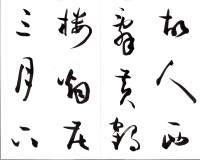 故人西
辭黃鶴
樓烟花
三月下